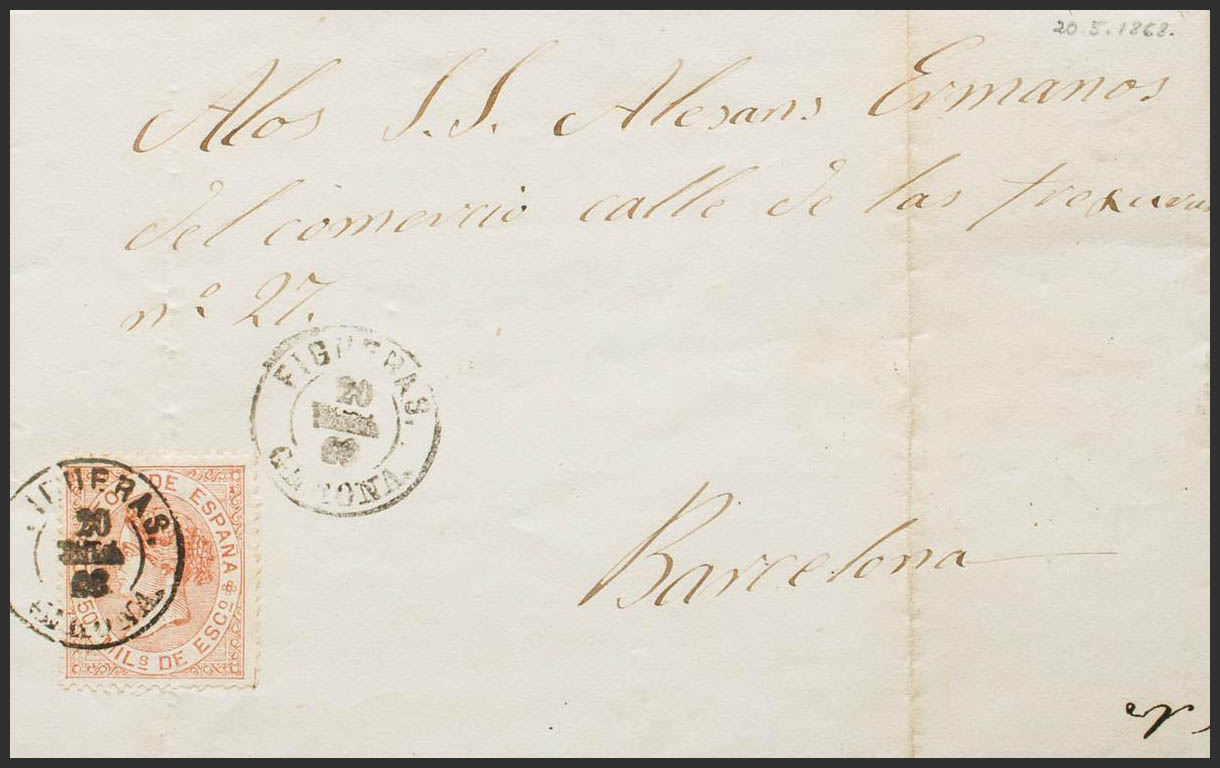 20 5. 1868.
Alos S. S. Alexans Ermanos
del comercio calle de las
nº 27.
FIGUERAS.
20
GERONA
Barcelona
FIGUERAS.
20
GERONA
DE ESPAÑA
50 MILS DE ESCO